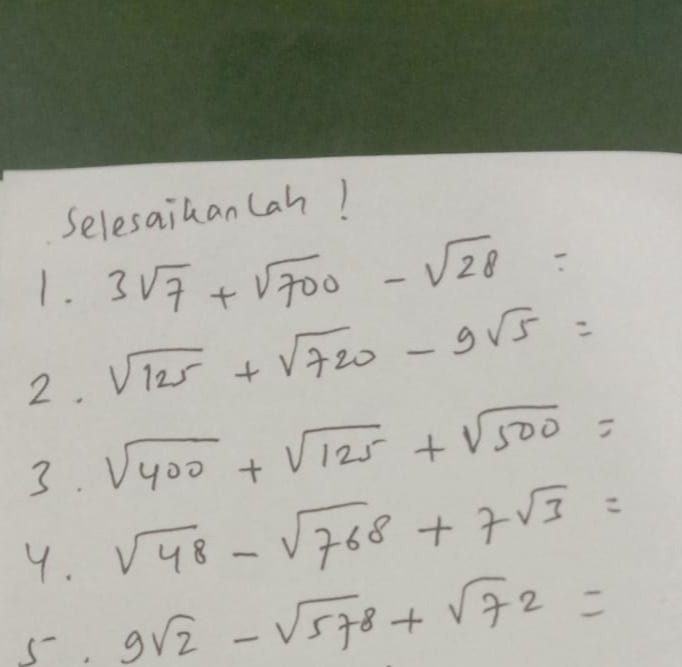 Selesaikanlah !
1. 3√7 + √700 - √28 =
2. √125 + √720 - 9√5 =
3. √400 + √125 + √500 =
4. √48 - √768 + 7√3 =
5. 9√2 - √578 + √72 =